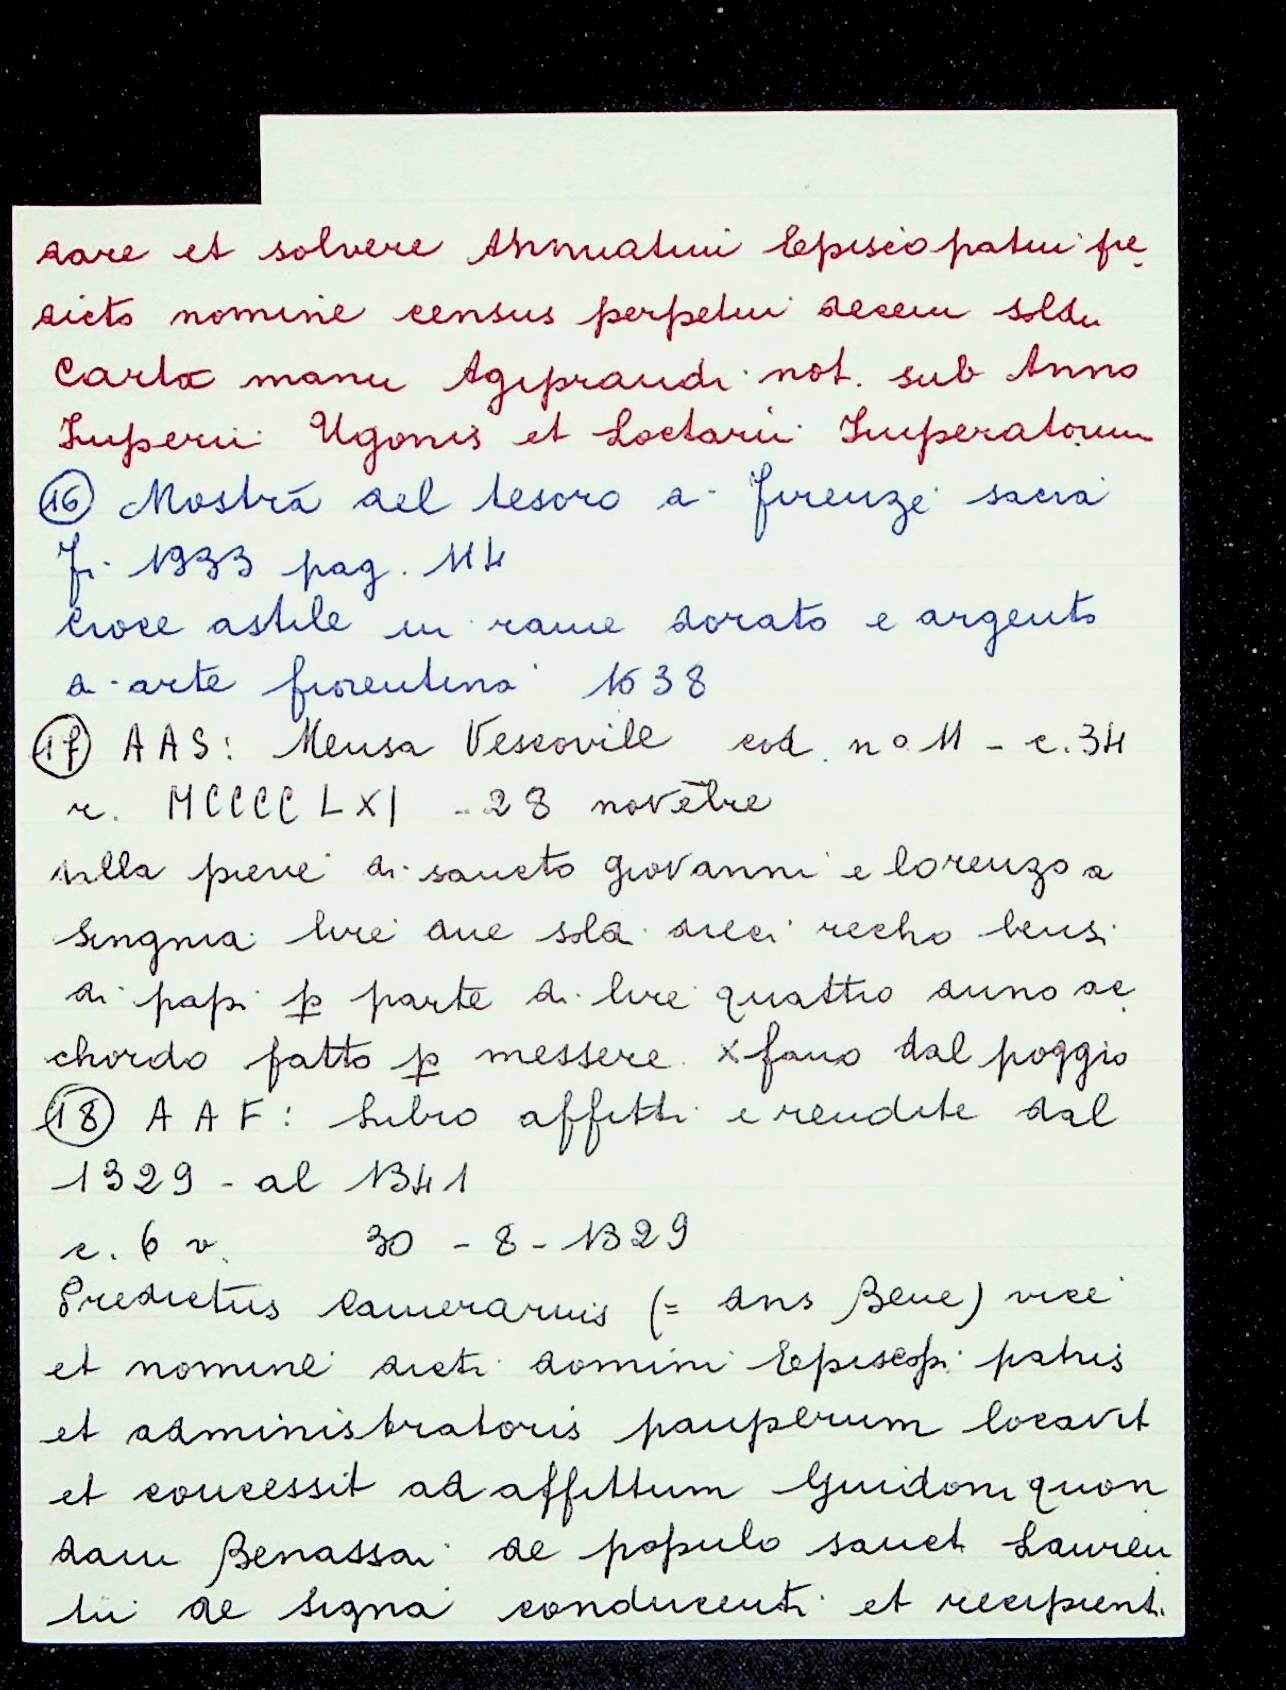 dare et solvere Annuatim Episcopatui pre
dicto nomine census perpetui decem soldu
Carta manu Agiprandi not. sub Anno
Imperii Ugonis et Loctarii Imperatorum
16 Mostra del tesoro di Firenze sacra
Fi. 1933 pag. 114
Croce astile in rame dorato e argento
di arte fiorentina 1638
17 AAS: Mensa Vescovile cod. n° 11 - c. 34
r. MCCCCLXI - 28 novēbre
dalla pieve di sancto giovanni e lorenzo a
Singnia lire due sola dieci recho bensi
di papi p parte di lire quattro duno ac
chordo fatto p messere xfano dal poggio
18 AAF: Libro affitti e rendite dal
1329 - al 1341
c. 6 v. 30 - 8 - 1329
Predictus Camerarius (= dns Bene) vice
et nomine dicti domini Episcopi patris
et administratoris pauperum locavit
et concessit ad affittum Guidoni quon
dam Benassai de populo sancti Lauren
tii de Signa conducenti et recipienti